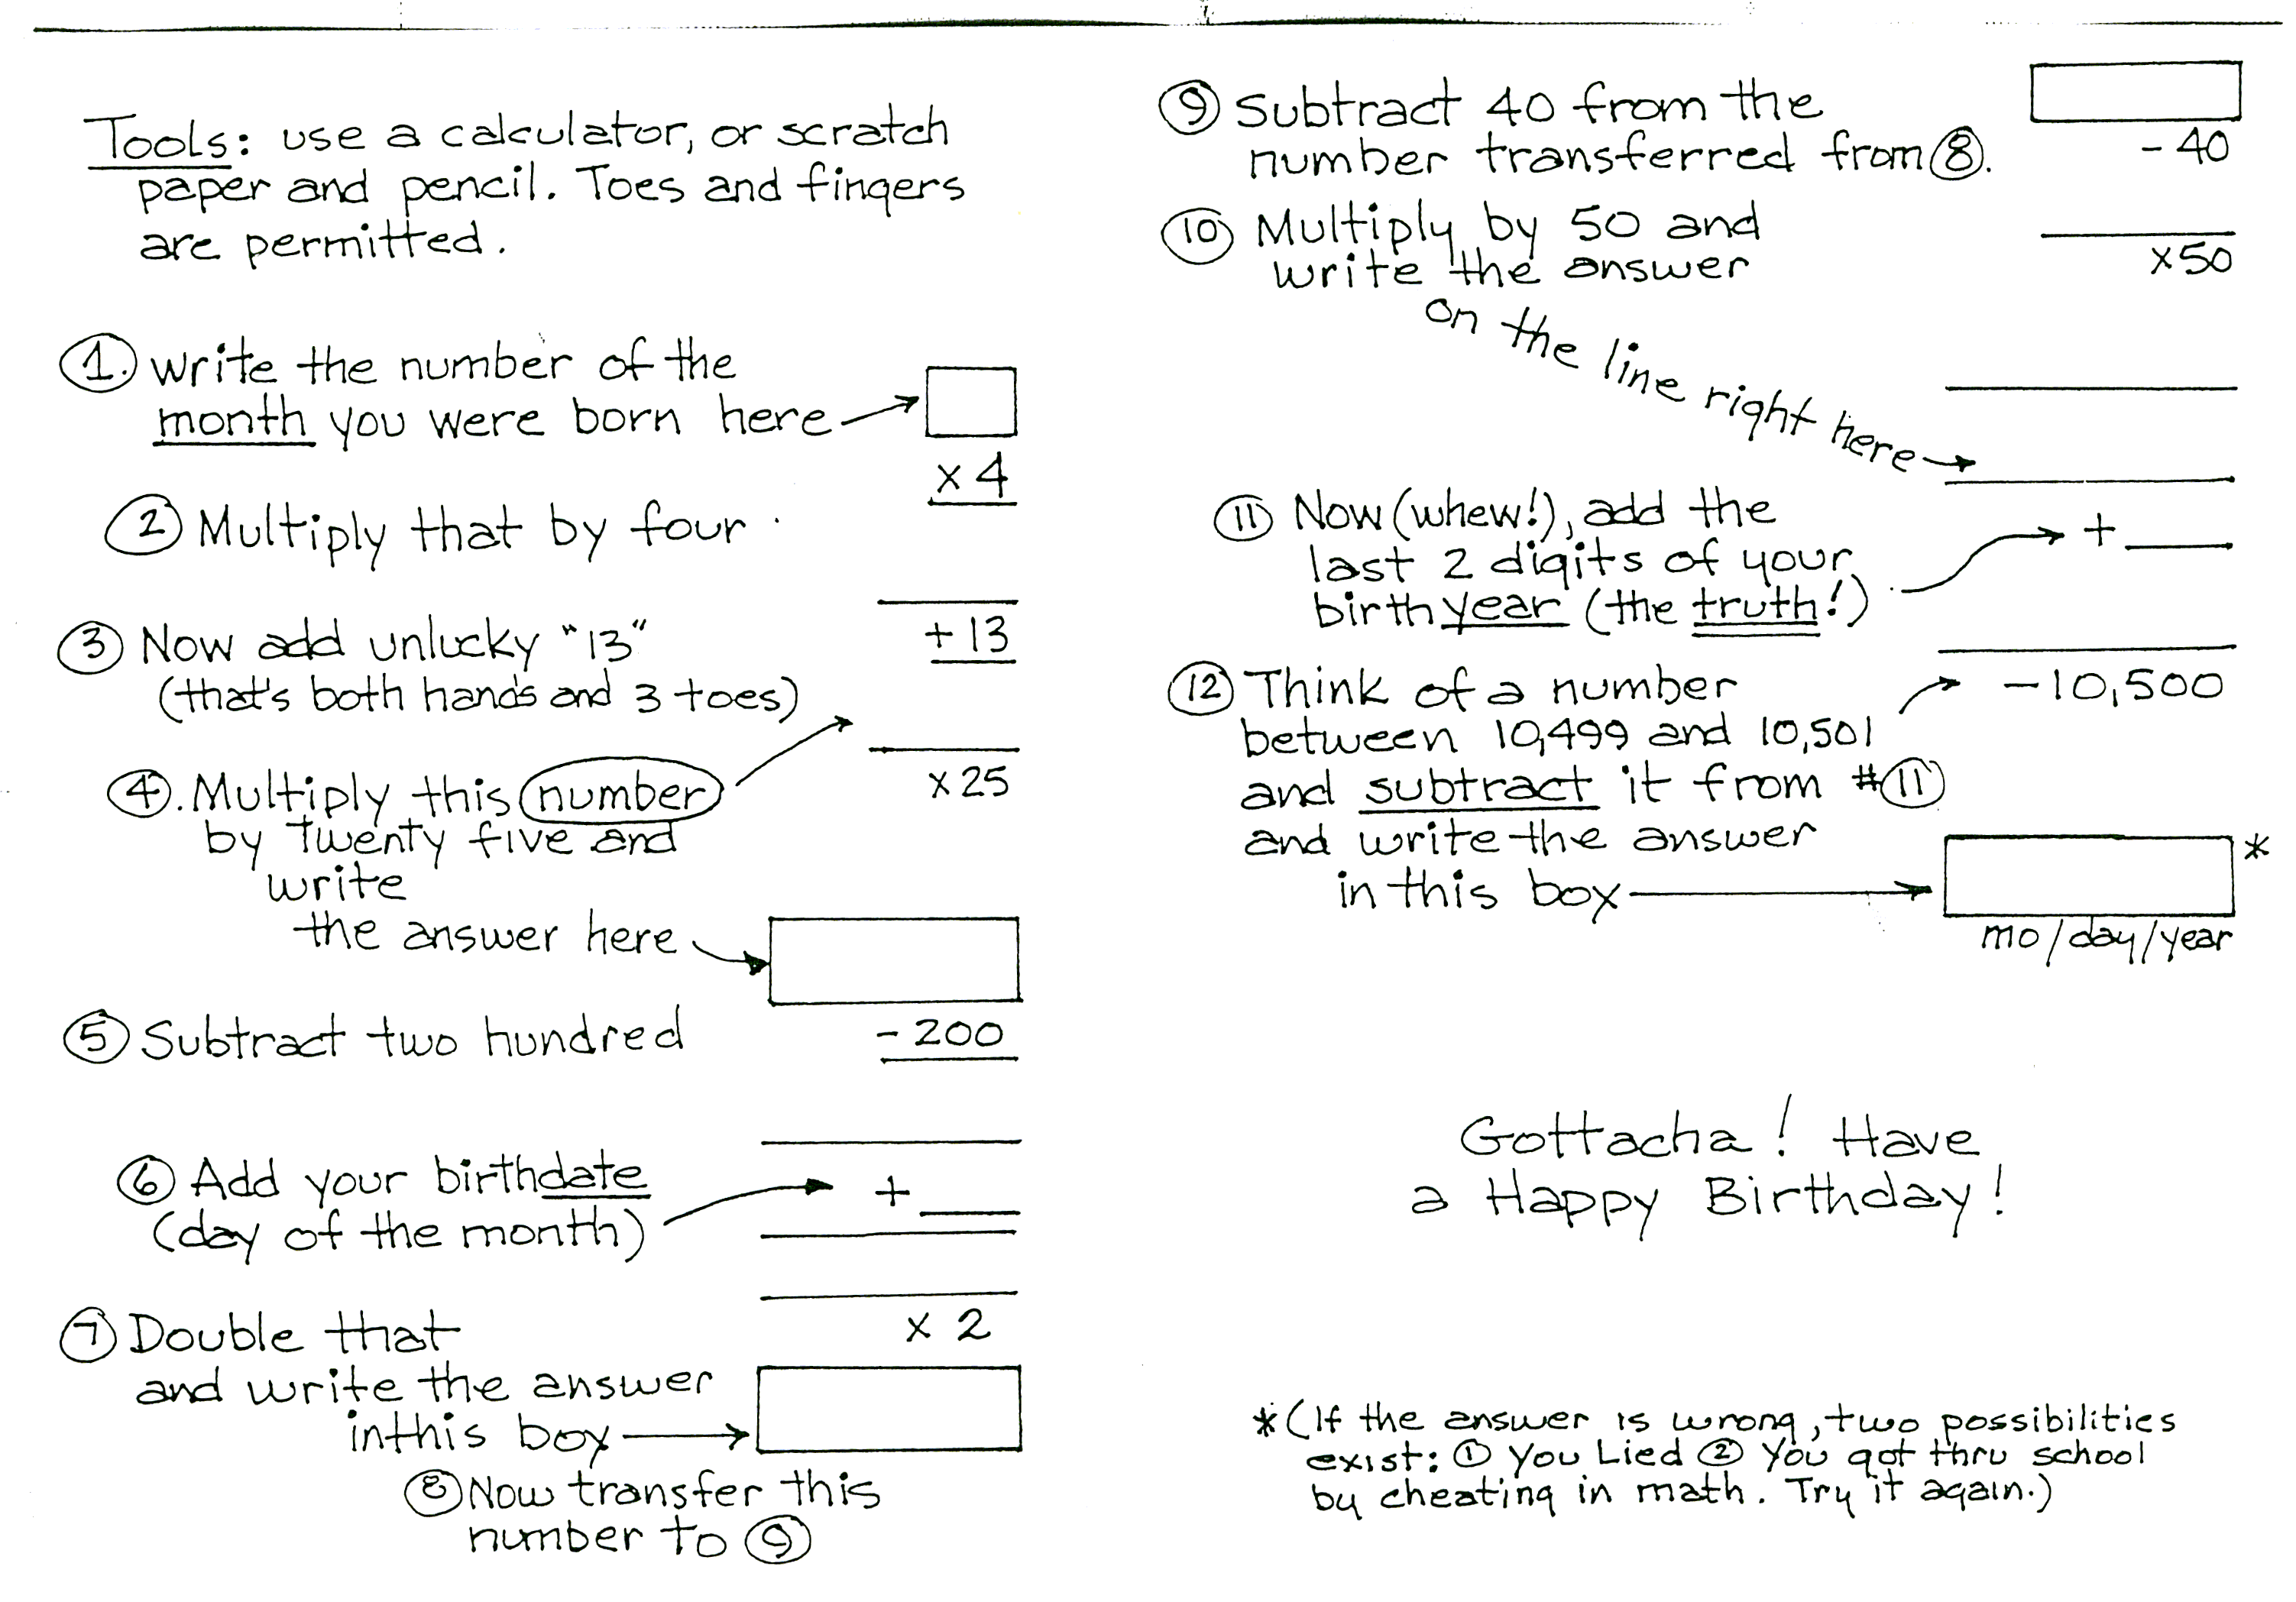 Tools: use a calculator, or scratch
paper and pencil. Toes and fingers
are permitted.
1. Write the number of the
month you were born here
x 4
2 Multiply that by four
3 Now add unlucky "13"
+ 13
(that's both hands and 3 toes)
4. Multiply this number
x 25
by twenty five and
write
the answer here
5 Subtract two hundred
- 200
6 Add your birthdate
(day of the month)
+
7 Double that
x 2
and write the answer
in this box
8 Now transfer this
number to 9
9 Subtract 40 from the
number transferred from 8.
- 40
10 Multiply by 50 and
write the answer
x 50
on the line right here
11 Now (whew!), add the
last 2 digits of your
+
birth year (the truth!)
12 Think of a number
- 10,500
between 10,499 and 10,501
and subtract it from #11
and write the answer
*
in this box
mo/day/year
Gottacha! Have
a Happy Birthday!
* (If the answer is wrong, two possibilities
exist: 1 You Lied 2 You got thru school
by cheating in math. Try it again.)